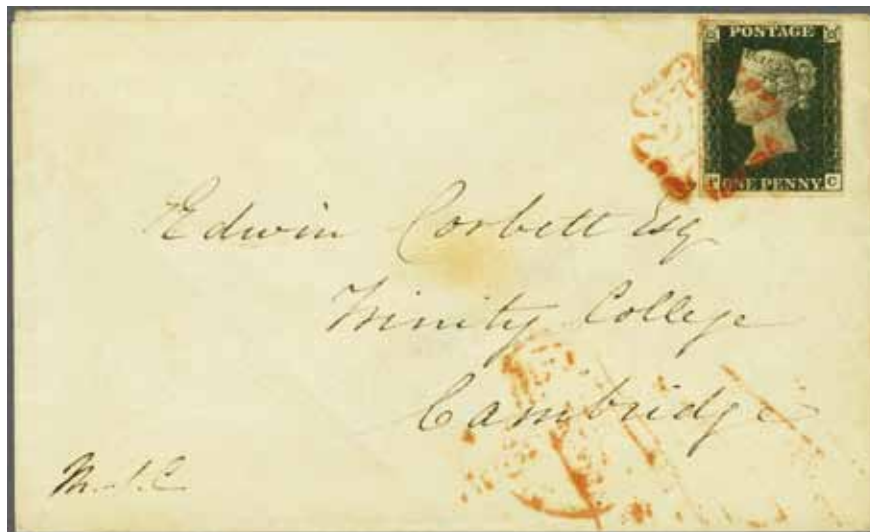 POSTAGE
ONE PENNY C
Edwin Corbett Esq
Trinity College
Cambridge